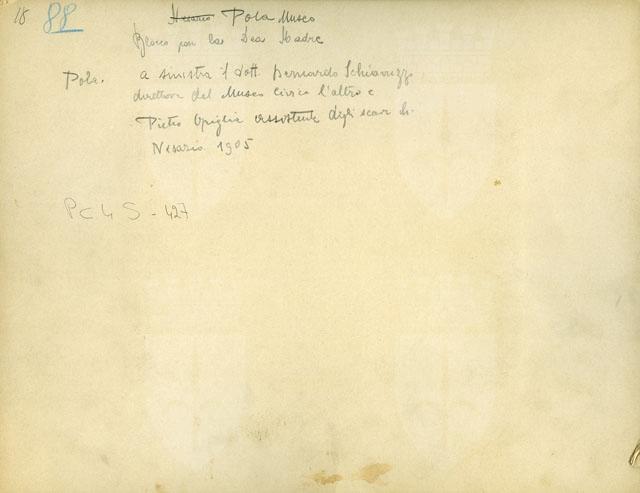 18 88
Nesazio Pola Museo
Blocco con la Dea Madre
Pola. a sinistra il dott. Bernardo Schiavuzzi
direttore del Museo civico l'altro è
Pietro Opiglia assistente degli scavi di
Nesazio 1905
PC4S-427